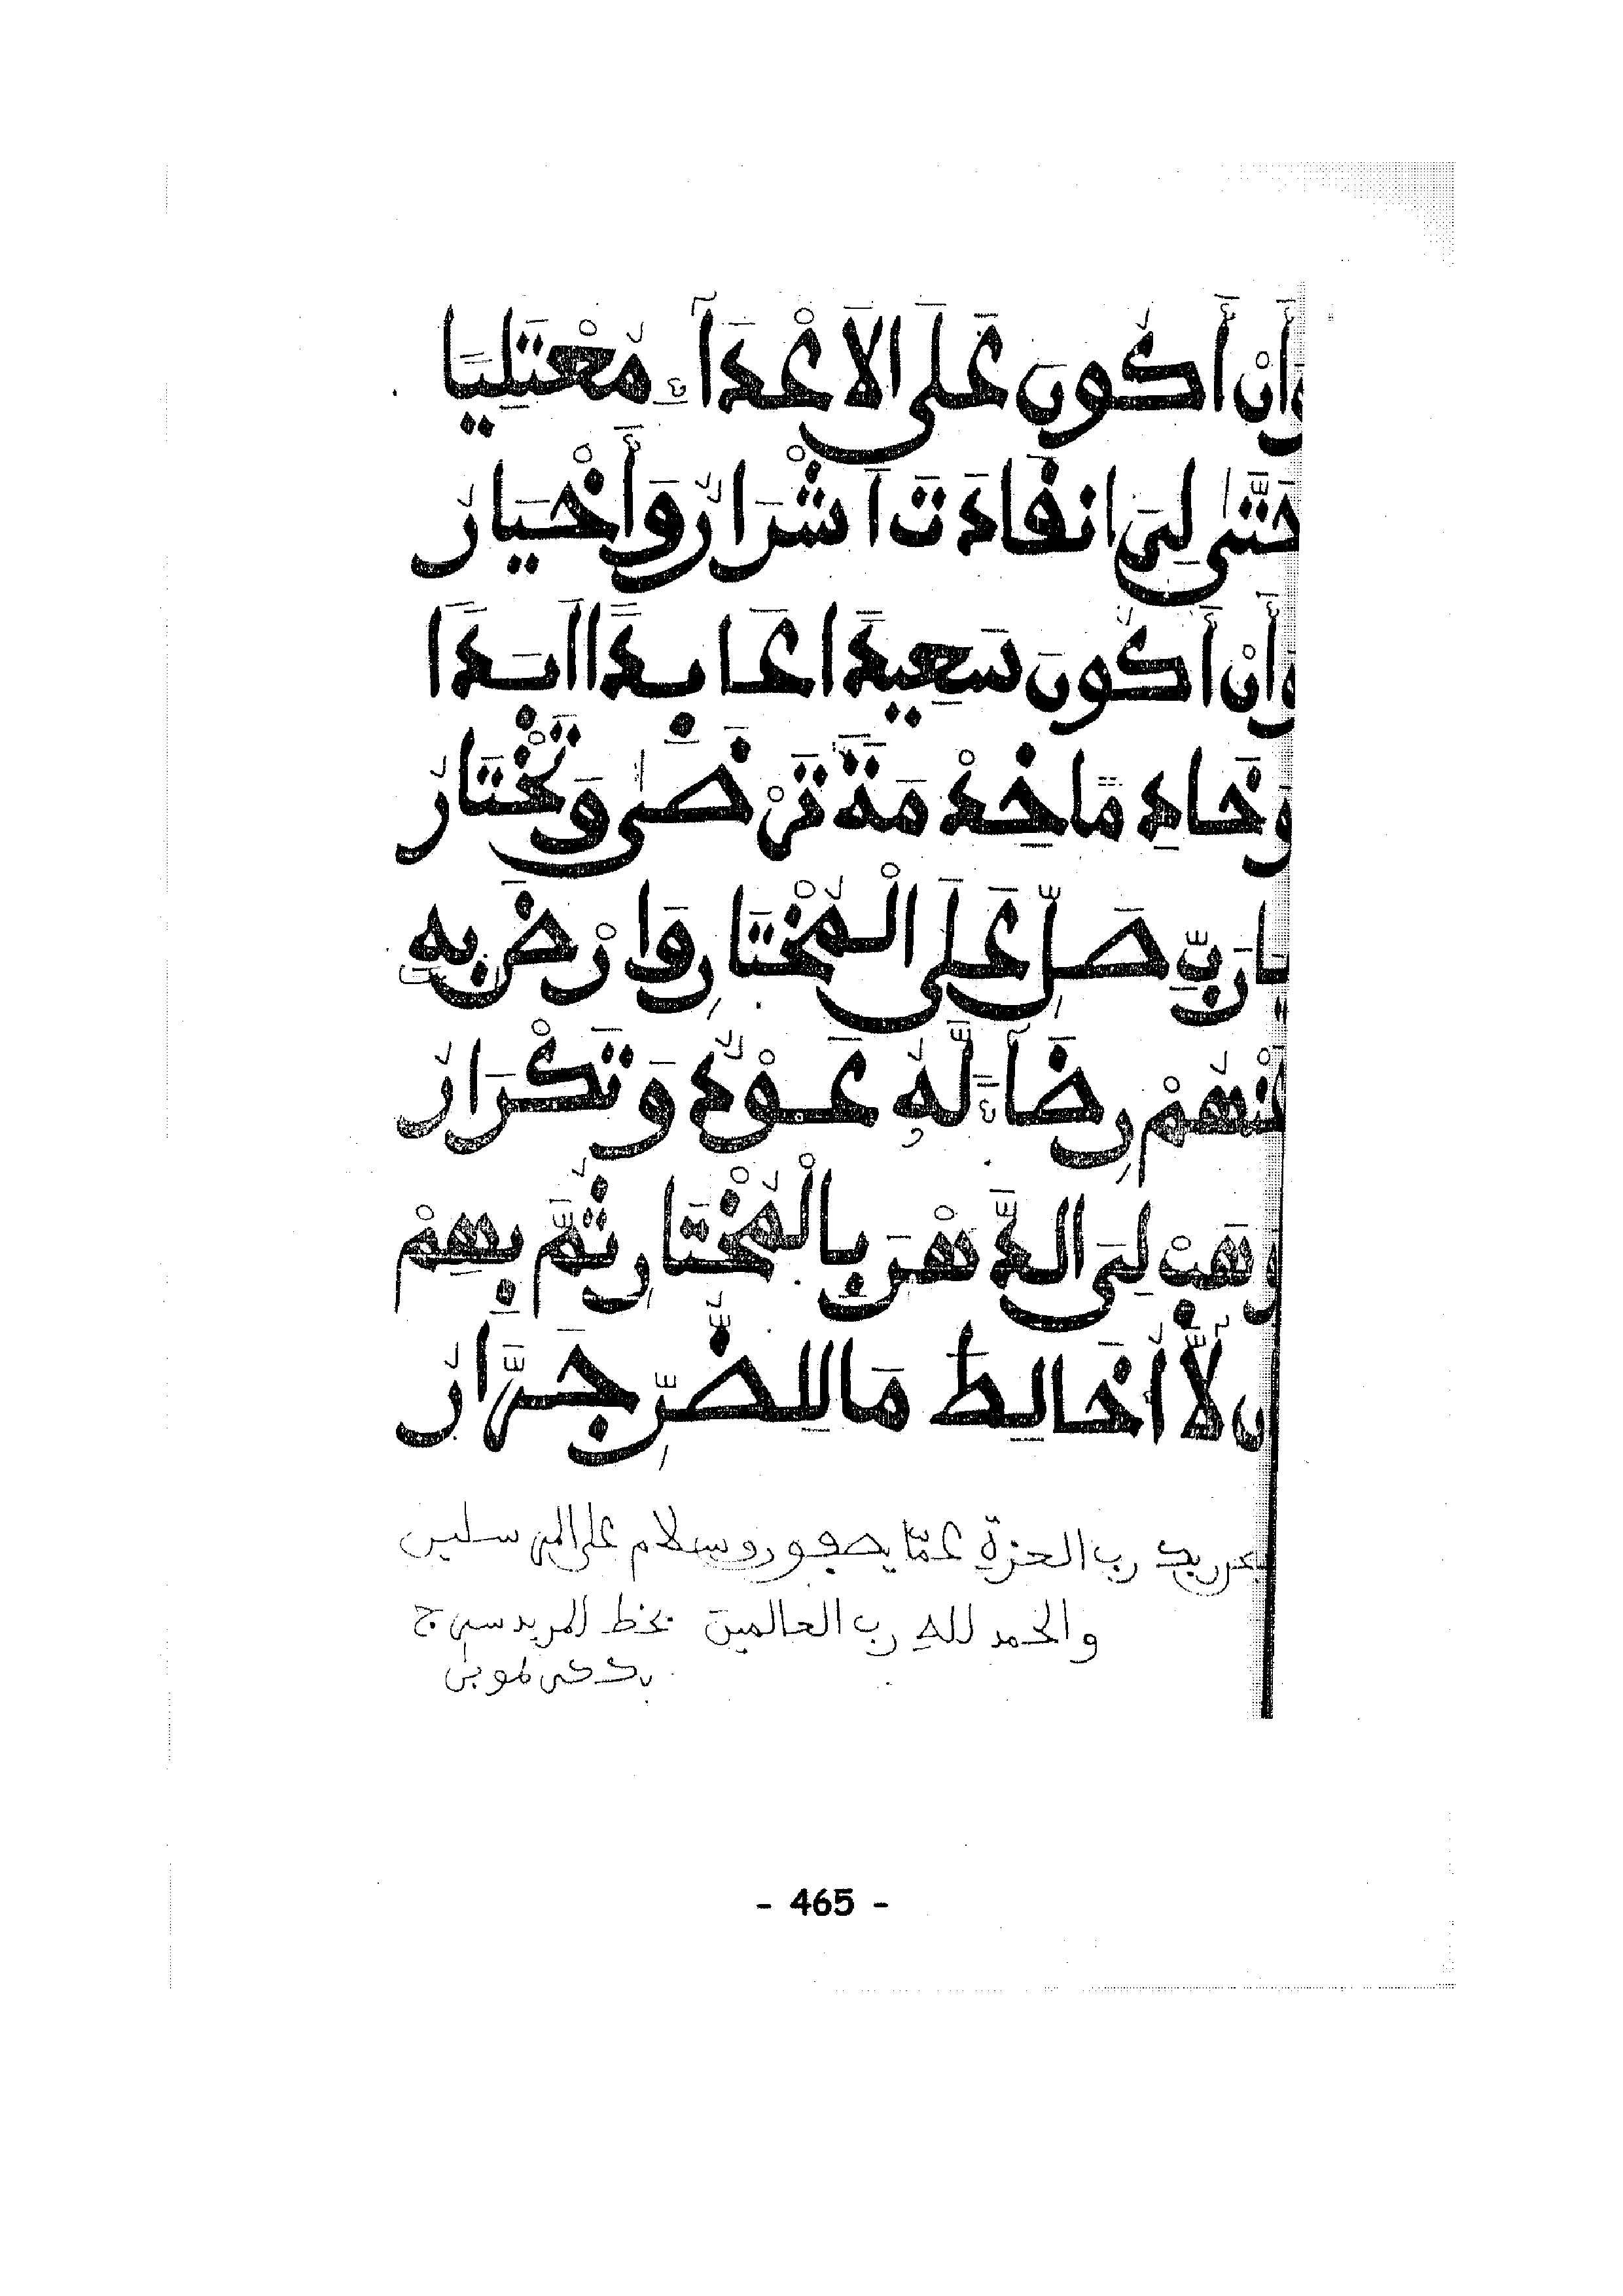 وَأَنْ أَكُونَ عَلَى الاَعْدَآءِ مُعْتَلِيًا
حَتَّى لِيَ انقَادَتَ اَشْرَارٌ وَأَخْيَارُ
وَأَنْ أَكُونَ سَعِيدًا عَابِدًا اَبَدًا
وَخَادِمًا خِدْمَةً تَرْضَى وَتَخْتَارُ
يَا رَبِّ صَلِّ عَلَى الْمُخْتَارِ وَارْضَ بِهِ
عَنْهُمْ رِضَآءً لَهُ عَوْدٌ وَتَكْرَارُ
وَهَبْ لِيَ الدَّهْرَ بِالْمُخْتَارِ ثُمَّ بِهِمْ
لَّا أُخَالِطَ مَا لِلضُّرِّ جَرَّارُ
ربك رب العزة عمّا يصفون وسلام على المرسلين
والحمد لله رب العالمين بخط المريد سرج
- 465 -